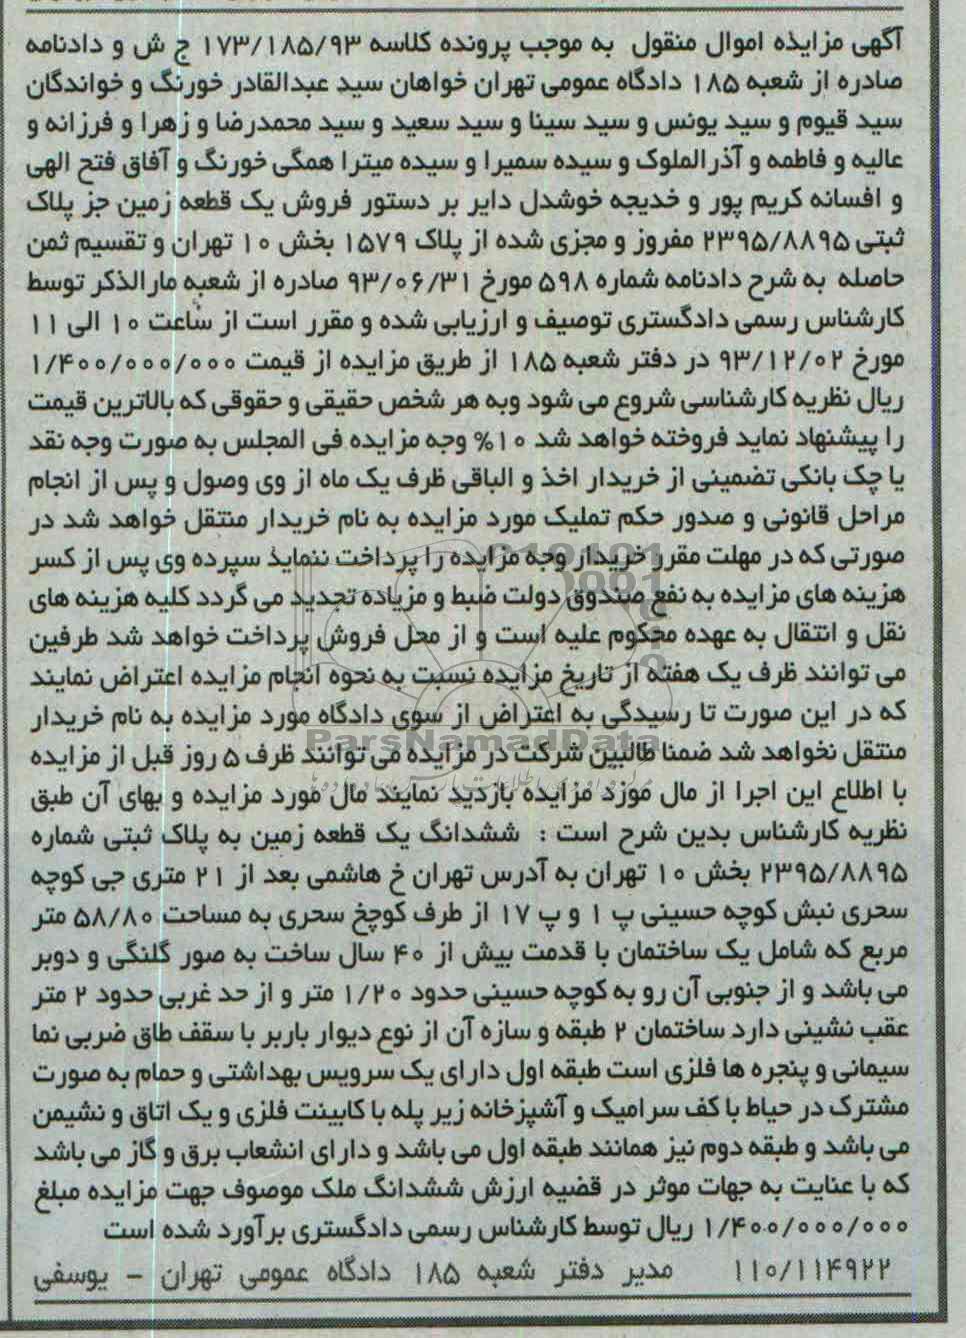 آگهی مزایده اموال منقول به موجب پرونده کلاسه ۱۷۳/۱۸۵/۹۳ ج ش و دادنامه
صادره از شعبه ۱۸۵ دادگاه عمومی تهران خواهان سید عبدالقادر خورنگ و خواندگان
سید قیوم و سید یونس و سید سینا و سید سعید و سید محمدرضا و زهرا و فرزانه و
عالیه و فاطمه و آذرالملوک و سیده سمیرا و سیده میترا همگی خورنگ و آفاق فتح الهی
و افسانه کریم پور و خدیجه خوشدل دایر بر دستور فروش یک قطعه زمین جز پلاک
ثبتی ۲۳۹۵/۸۸۹۵ مفروز و مجزی شده از پلاک ۱۵۷۹ بخش ۱۰ تهران و تقسیم ثمن
حاصله به شرح دادنامه شماره ۵۹۸ مورخ ۹۳/۰۶/۳۱ صادره از شعبه مارالذکر توسط
کارشناس رسمی دادگستری توصیف و ارزیابی شده و مقرر است از ساعت ۱۰ الی ۱۱
مورخ ۹۳/۱۲/۰۲ در دفتر شعبه ۱۸۵ از طریق مزایده از قیمت ۱/۴۰۰/۰۰۰/۰۰۰
ریال نظریه کارشناسی شروع می شود وبه هر شخص حقیقی و حقوقی که بالاترین قیمت
را پیشنهاد نماید فروخته خواهد شد ۱۰% وجه مزایده فی المجلس به صورت وجه نقد
یا چک بانکی تضمینی از خریدار اخذ و الباقی ظرف یک ماه از وی وصول و پس از انجام
مراحل قانونی و صدور حکم تملیک مورد مزایده به نام خریدار منتقل خواهد شد در
صورتی که در مهلت مقرر خریدار وجه مزایده را پرداخت ننماید سپرده وی پس از کسر
هزینه های مزایده به نفع صندوق دولت ضبط و مزیاده تجدید می گردد کلیه هزینه های
نقل و انتقال به عهده محکوم علیه است و از محل فروش پرداخت خواهد شد طرفین
می توانند ظرف یک هفته از تاریخ مزایده نسبت به نحوه انجام مزایده اعتراض نمایند
که در این صورت تا رسیدگی به اعتراض از سوی دادگاه مورد مزایده به نام خریدار
ParsNamadData
منتقل نخواهد شد ضمنا طالبین شرکت در مزایده می توانند ظرف ۵ روز قبل از مزایده
با اطلاع این اجرا از مال مورد مزایده بازدید نمایند مال مورد مزایده و بهای آن طبق
نظریه کارشناس بدین شرح است : ششدانگ یک قطعه زمین به پلاک ثبتی شماره
۲۳۹۵/۸۸۹۵ بخش ۱۰ تهران به آدرس تهران خ هاشمی بعد از ۲۱ متری جی کوچه
سحری نبش کوچه حسینی پ ۱ و پ ۱۷ از طرف کوچخ سحری به مساحت ۵۸/۸۰ متر
مربع که شامل یک ساختمان با قدمت بیش از ۴۰ سال ساخت به صور گلنگی و دوبر
می باشد و از جنوبی آن رو به کوچه حسینی حدود ۱/۲۰ متر و از حد غربی حدود ۲ متر
عقب نشینی دارد ساختمان ۲ طبقه و سازه آن از نوع دیوار باربر با سقف طاق ضربی نما
سیمانی و پنجره ها فلزی است طبقه اول دارای یک سرویس بهداشتی و حمام به صورت
مشترک در حیاط با کف سرامیک و آشپزخانه زیر پله با کابینت فلزی و یک اتاق و نشیمن
می باشد و طبقه دوم نیز همانند طبقه اول می باشد و دارای انشعاب برق و گاز می باشد
که با عنایت به جهات موثر در قضیه ارزش ششدانگ ملک موصوف جهت مزایده مبلغ
۱/۴۰۰/۰۰۰/۰۰۰ ریال توسط کارشناس رسمی دادگستری برآورد شده است
۱۱۰/۱۱۴۹۲۲ مدیر دفتر شعبه ۱۸۵ دادگاه عمومی تهران - یوسفی